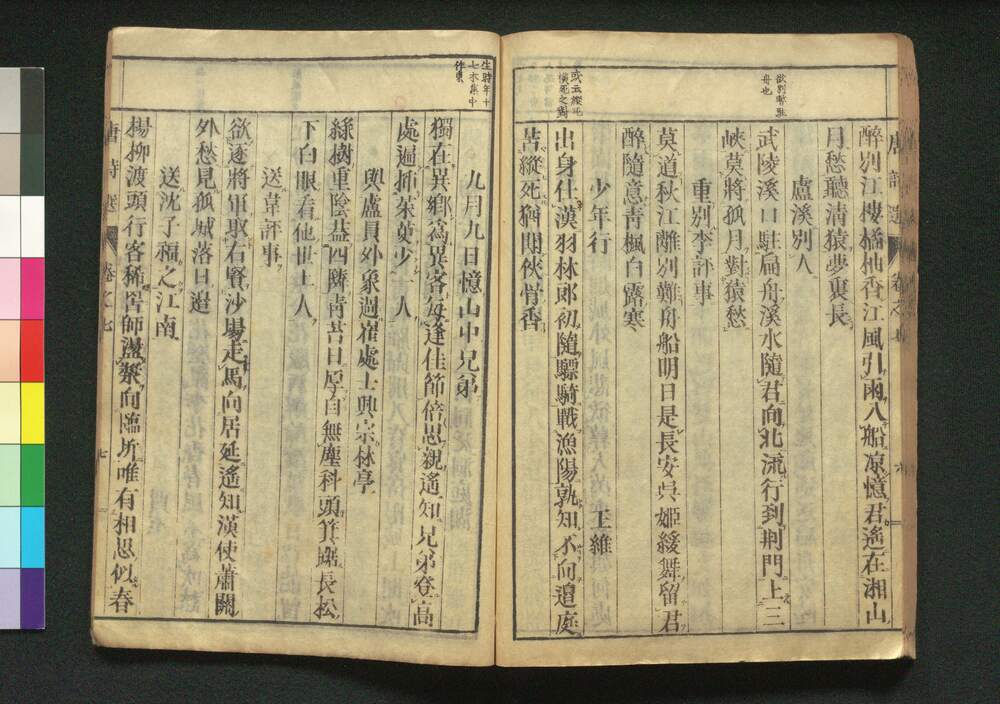 欲別暫駐
舟也
醉別江樓橘柚香江風引雨入船凉憶君遙在湘山
月愁聽清猿夢裏長
盧溪別人
武陵溪口駐扁舟溪水隨君向北流行到荆門上三
峽莫將孤月對猿愁
重別李評事
莫道秋江離別難舟船明日是長安呉姬緩舞留君
醉隨意青楓白露寒
少年行 王維
出身仕漢羽林郎初隨驃騎戰漁陽孰知不向邊庭
苦縱死猶聞俠骨香
唐詩選 卷之七 六
九月九日憶山中兄弟
獨在異鄉爲異客每逢佳節倍思親遙知兄弟登高
處遍插茱萸少一人
與盧員外象過崔處士興宗林亭
綠樹重陰蓋四隣靑苔日厚自無塵科頭箕踞長松
下白眼看他世上人
送韋評事
欲逐將軍取右賢沙場走馬向居延遙知漢使蕭關
外愁見孤城落日邉
送沈子福之江南
楊柳渡頭行客稀罟師盪槳向臨圻唯有相思似春
唐詩選 卷之七 七